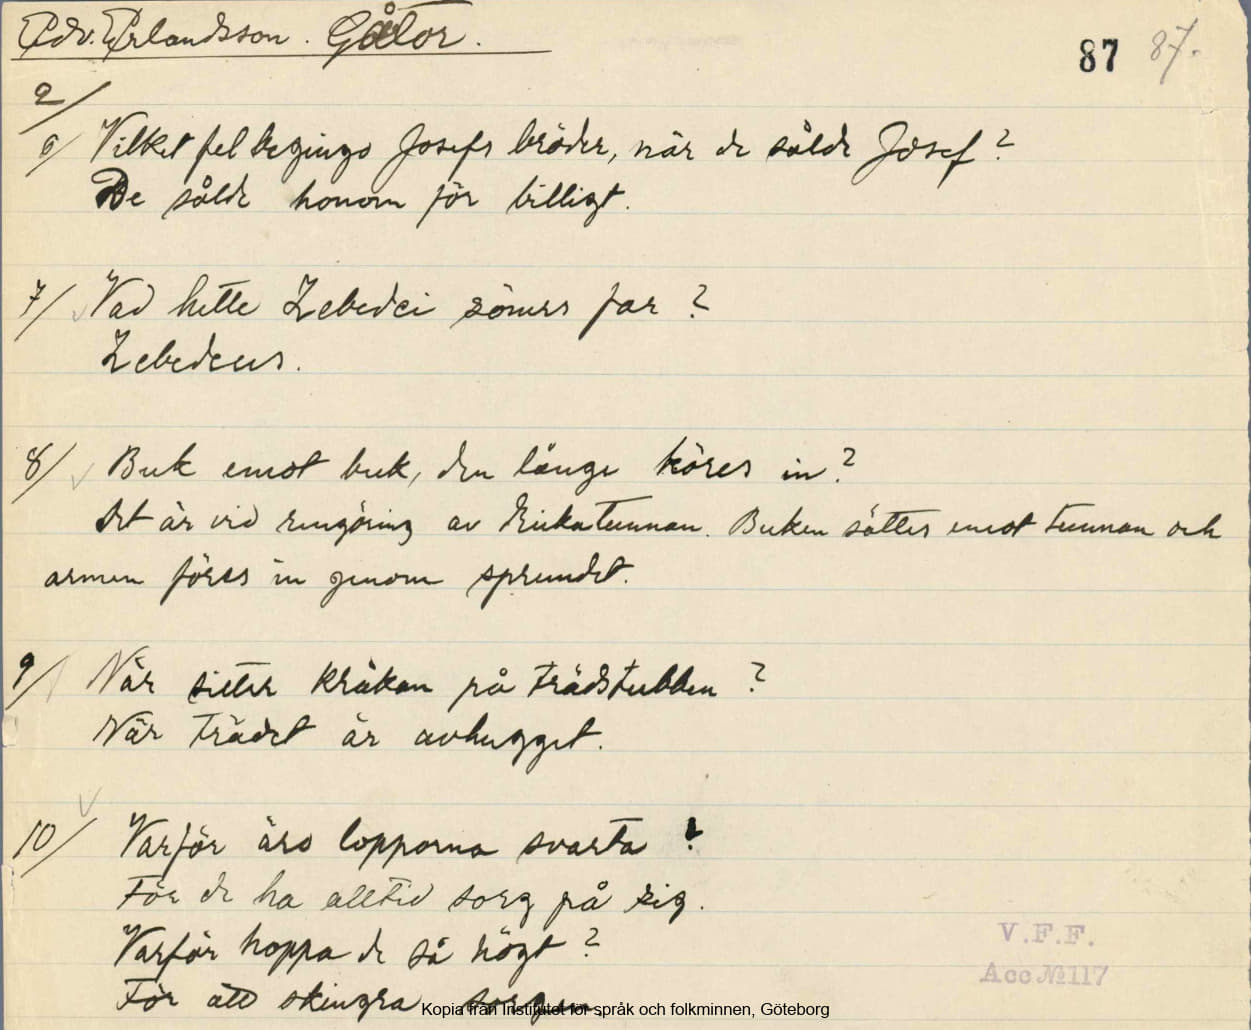 Edv. Erlandsson. Gåtor.
87 87.
2/
6/ Vilket fel begingo Josefs bröder, när de sålde Josef?
De sålde honom för billigt.
7/ Vad hette Zebedei söners far?
Zebedeus.
8/ Buk emot buk, den långe köres in?
Det är vid rengöring av drickatunnan. Buken sättes emot tunnan och
armen föres in genom sprundet.
9/ När sitter kråkan på trädstubben?
När trädet är avhugget.
10/ Varför äro lopporna svarta?
För de ha alltid sorg på sig.
Varför hoppa de så högt?
För att skingra sorgen.
V.F.F.
Acc № 117
Kopia från Institutet för språk och folkminnen, Göteborg